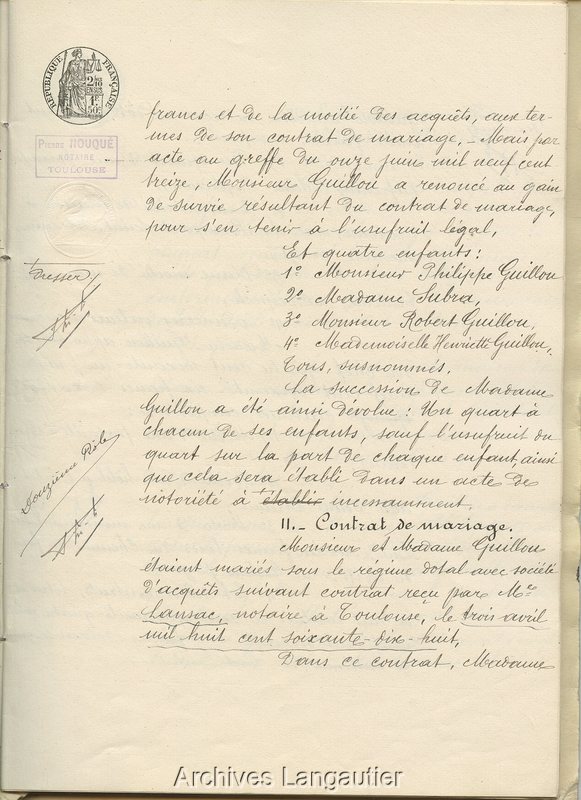 RÉPUBLIQUE FRANÇAISE
PIERRE NOUQUÉ
NOTAIRE
TOULOUSE
francs et de la moitié des acquêts, aux ter-
mes de son contrat de mariage, - Mais par
acte au greffe du onze juin mil neuf cent
treize, Monsieur Guillou a renoncé au gain
de survie résultant du contrat de mariage,
pour s'en tenir à l'usufruit légal,
Et quatre enfants :
1º Monsieur Philippe Guillou
2º Madame Subra,
3º Monsieur Robert Guillou,
4º Mademoiselle Henriette Guillou,
Tous, susnommés,
La succession de Madame
Guillou a été ainsi dévolue : Un quart à
chacun de ses enfants, sauf l'usufruit du
quart sur la part de chaque enfant, ainsi
que cela sera établi dans un acte de
notoriété à établir incessamment.
11.- Contrat de mariage.
Monsieur et Madame Guillou
étaient mariés sous le régime dotal avec société
d'acquêts suivant contrat reçu par Me
Lansac, notaire à Toulouse, le trois avril
mil huit cent soixante-dix-huit,
Dans ce contrat, Madame
dresser
Douzième Rôle
Archives Langautier